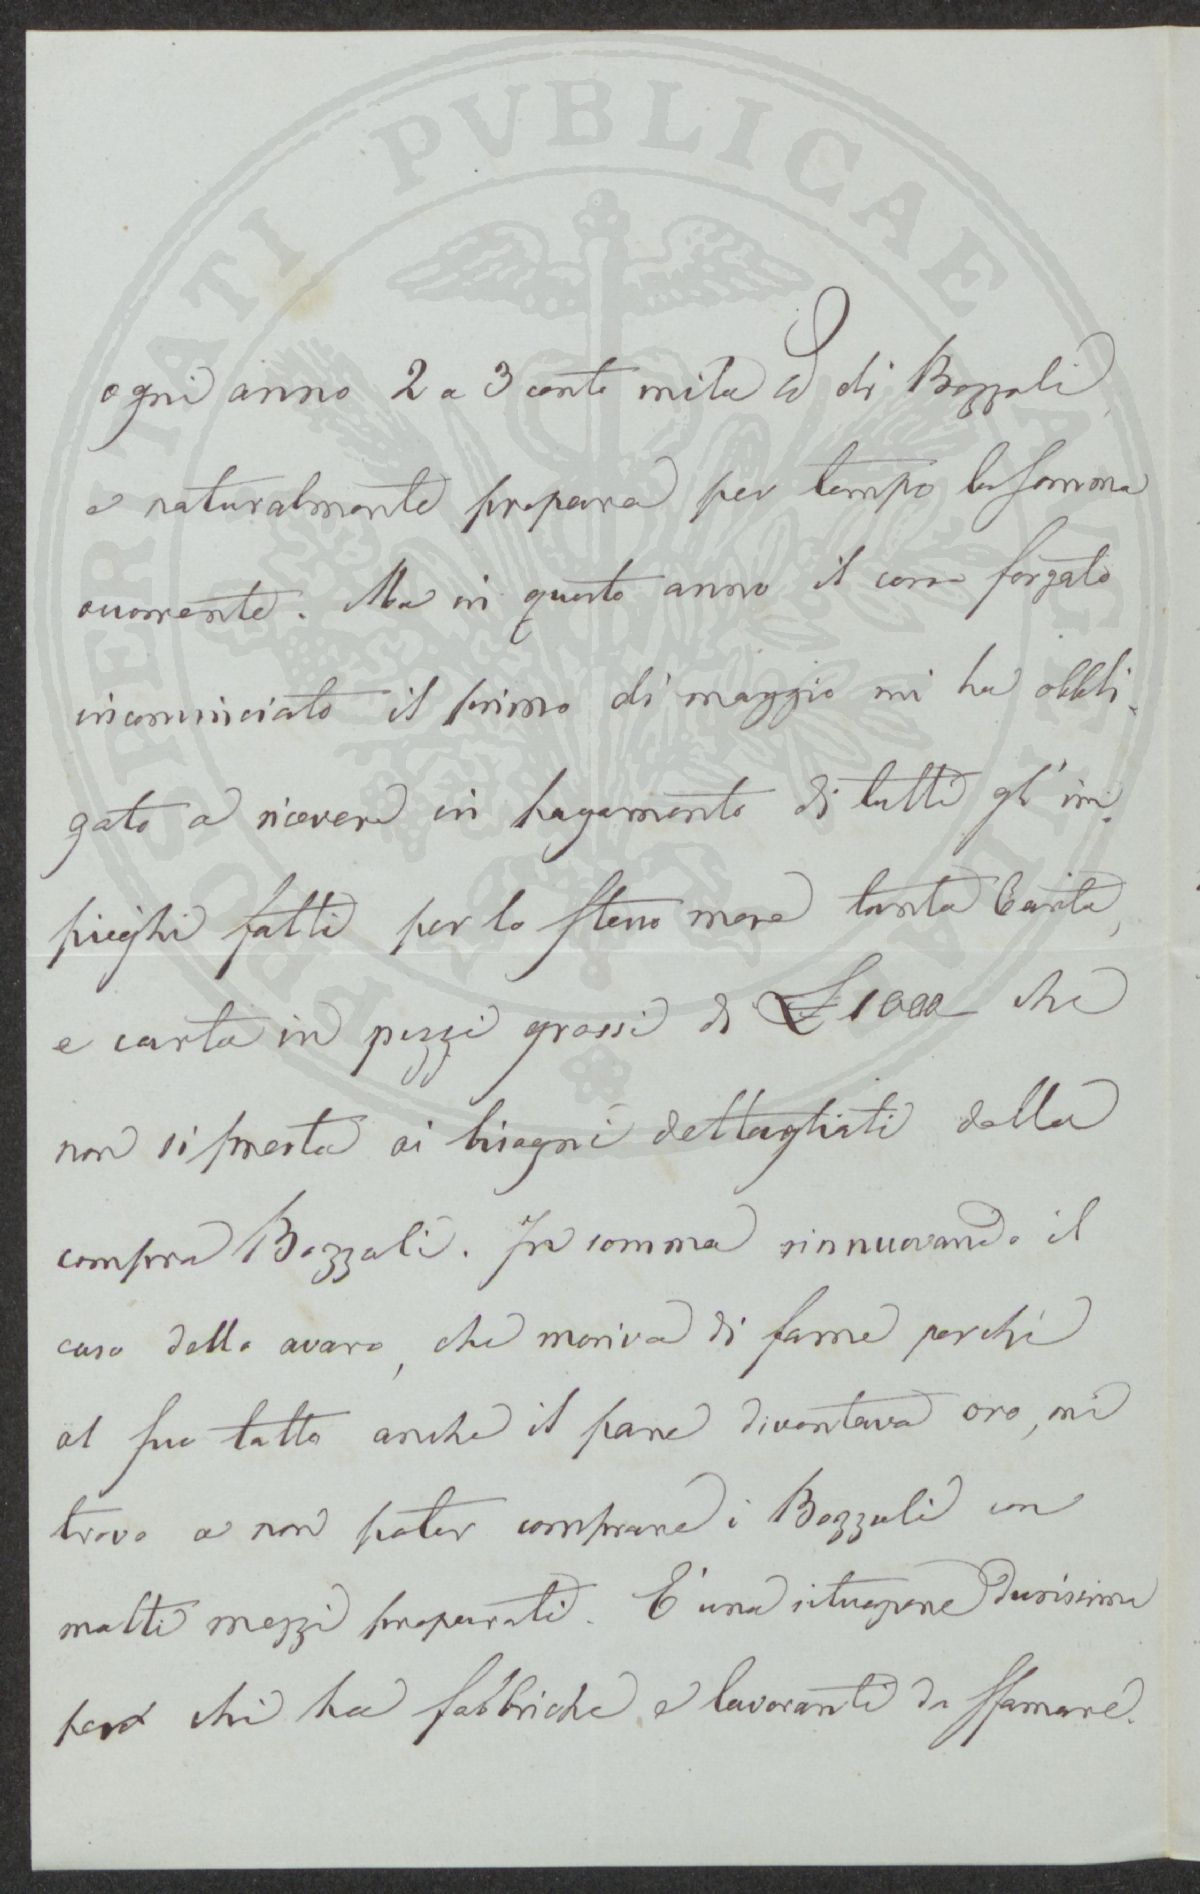 PROSPERITATI PVBLICAE AVGENDAE
ogni anno 2 a 3 cento mila ℔ di Bozzoli,
e naturalmente prepara per tempo la somma
occorrente. Ma in questo anno il corso forzato
incominciato il primo di maggio mi ha obbli-
gato a ricevere in pagamento di tutti gl'im-
pieghi fatti per lo stesso mese tanta Carta,
e carta in pezzi grossi di £ 1000 che
non si presta ai bisogni dettagliati della
compra Bozzoli. In somma rinnuovando il
caso dello avaro, che moriva di fame perchè
al suo tatto anche il pane diventava oro, mi
trovo a non poter comprare i Bozzoli con
molti mezzi preparati. E' una situazione durissima
per chi ha fabbriche e lavoranti da sfamare.